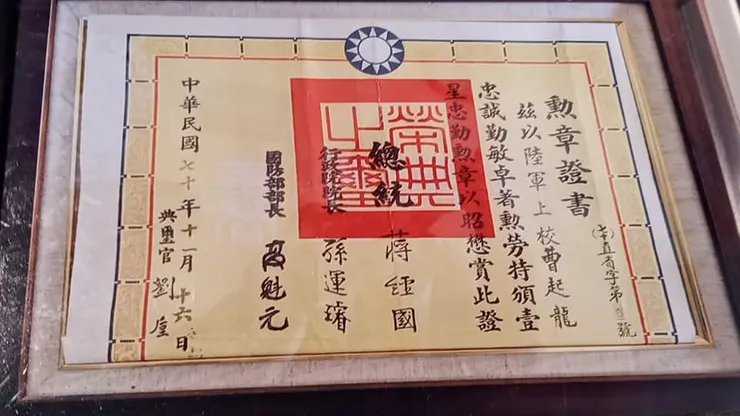 勲章證書
(七十)直甫字第號
茲以陸軍上校曹起龍
忠誠勤敏卓著勲勞持頒壹
星忠勤勲章以昭懋賞此證
榮典之璽
總統 蔣經國
行政院院長 孫運璿
國防部部長 高魁元
中華民國七十年十一月十六日
典璽官 劉垕